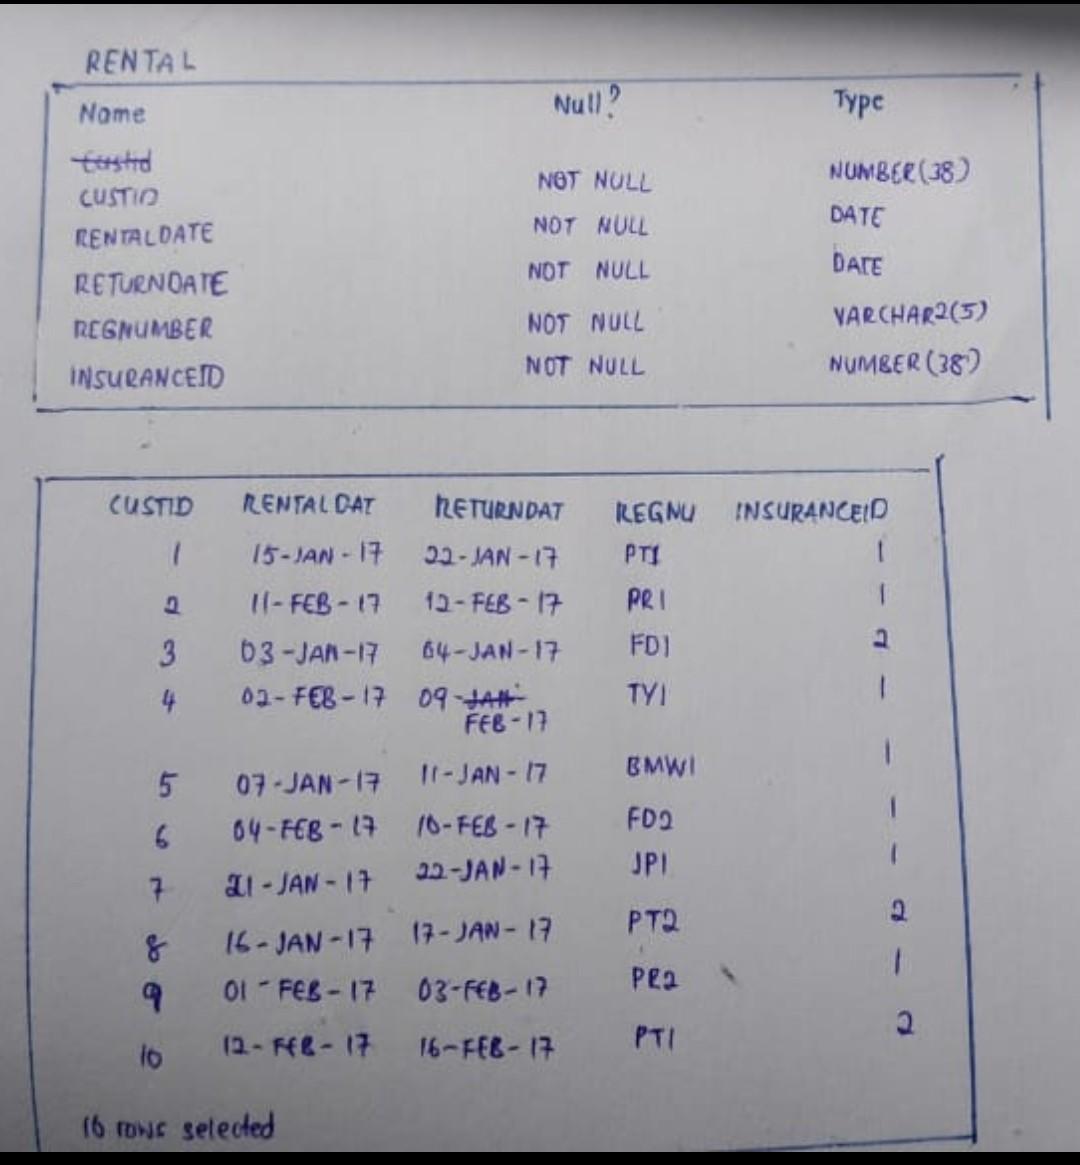 RENTAL
Name Null? Type
Custid
CUSTID NOT NULL NUMBER(38)
RENTALDATE NOT NULL DATE
RETURNDATE NOT NULL DATE
REGNUMBER NOT NULL VARCHAR2(5)
INSURANCEID NOT NULL NUMBER(38)
CUSTID RENTALDAT RETURNDAT REGNU INSURANCEID
1 15-JAN-17 22-JAN-17 PT1 1
2 11-FEB-17 12-FEB-17 PR1 1
3 03-JAN-17 04-JAN-17 FD1 2
4 02-FEB-17 09-JAN TY1 1
FEB-17
5 07-JAN-17 11-JAN-17 BMW1 1
6 04-FEB-17 10-FEB-17 FD2 1
7 21-JAN-17 22-JAN-17 JP1 1
8 16-JAN-17 17-JAN-17 PT2 2
9 01-FEB-17 03-FEB-17 PR2 1
10 12-FEB-17 16-FEB-17 PT1 2
10 rows selected